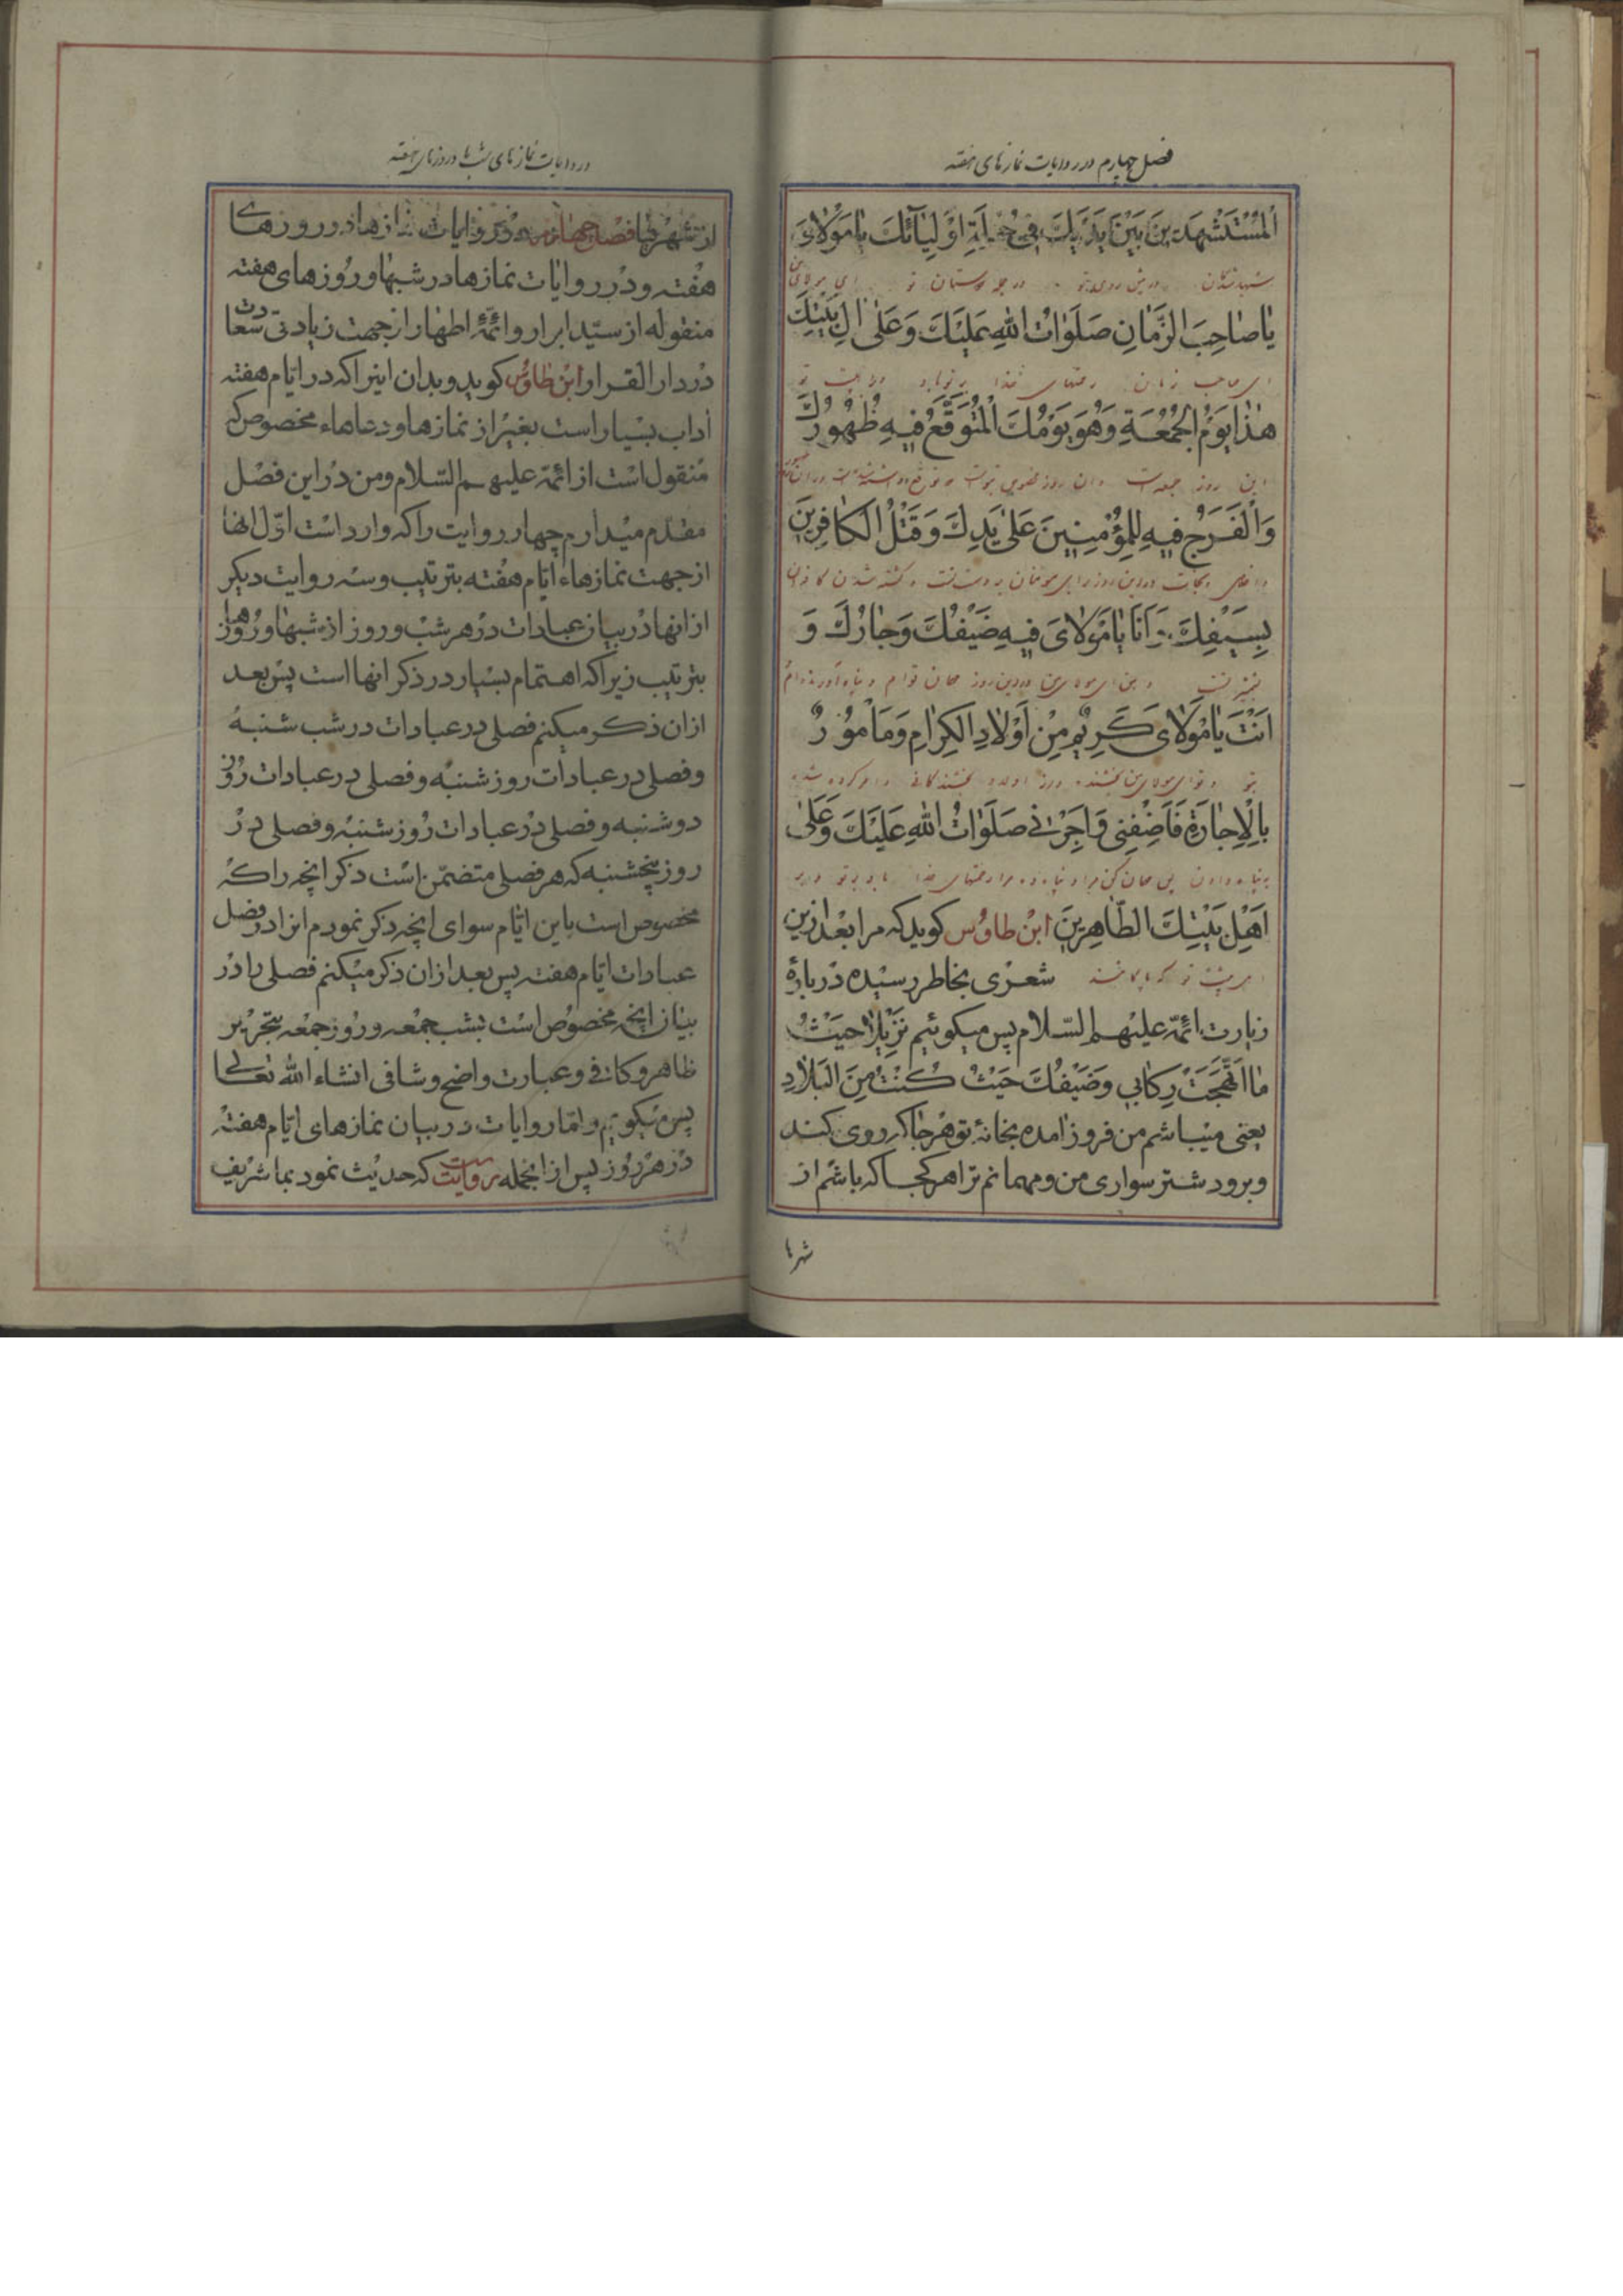 فصل چهارم در روایات نمازهای هفته
اَلْمُسْتَشْهَدینَ بَیْنَ یَدَیْكَ فی جُمْلَةِ اَوْلِیآئِكَ یا مَوْلایَ
شهیدشدگان در پیش روی تو در جمله دوستان تو ای مولای من
یا صاحِبَ الزَّمانِ صَلَواتُ اللهِ عَلَیْكَ وَعَلی الِ بَیْتِكَ
ای صاحب زمان رحمتهای خدا بر تو باد و اهل بیت تو
هذا یَوْمُ الْجُمُعَةِ وَهُوَ یَوْمُكَ الْمُتَوَقَّعُ فیهِ ظُهُورُكَ
این روز جمعه است و آن روز
وَالْفَرَجُ فیهِ لِلْمُؤْمِنینَ عَلی یَدِكَ وَقَتْلُ الکافِرینَ
و نجات در این روز برای مومنان بر دست تست و کشته شدن کافران
بِسَیْفِكَ وَاَنَا یا مَوْلایَ فیهِ ضَیْفُكَ وَجارُكَ وَ
و من ای مولای من در این روز مهمان توام و پناه آورنده‌ام
اَنْتَ یا مَوْلایَ کَریمٌ مِنْ اَوْلادِ الکِرامِ وَمَأْمُورٌ
بتو و توای مولای من بخشنده و از اولاد بخشندگانی و امر کرده شده
بِالْاِجارَةِ فَاَضِفْنی وَاَجِرْنی صَلَواتُ اللهِ عَلَیْكَ وَعَلی
به پناه دادن پس مهمان کن مرا و پناه ده مرا رحمتهای خدا باد بر تو و بر
اَهْلِ بَیْتِكَ الطّاهِرینَ ابن طاوس کوید که مرا بعد ازین
اهل بیت تو که پاکانند شعری بخاطر رسیده در بارهٔ
زیارت ائمّه علیهم السّلام پس میکوئیم نَزیلُكَ حَیْثُ
مَا اتَّجَهَتْ رِکابی وَضَیْفُكَ حَیْثُ کُنْتُ مِنَ الْبَلادِ
یعنی میباشم من فروز امده بخانهٔ تو هر جا که روی کند
و برود شتر سواری من و مهمانم ترا هر کجا که باشم از
شهرها
در روایات نمازهای شبها و روزهای هفته
از شهرها فصل چهارم در ذکر روایات نمازها در روزهای
هفته و در روایات نمازها در شبها و روزهای هفته
منقوله از سیّد ابرار و ائمّهٔ اطهار از جهت زیادتی سعادت
در دار القرار ابن طاوس کوید و بدان اینرا که در ایّام هفته
اداب بسیار است بغیر از نمازها و دعاهاء مخصوص که
منقول است از ائمّه علیهم السّلام و من در این فصل
مقدّم میدارم چهار روایت را که وارد است اوّل انها
از جهت نمازهاء ایّام هفته بترتیب و سه روایت دیکر
از انها در بیان عبادات در هر شب و روز از شبها و روزها
بترتیب زیرا که اهتمام بسیار در ذکر انها است پس بعد
ازان ذکر میکنم فصلی در عبادات در شب شنبه
و فصلی در عبادات روز شنبه و فصلی در عبادات روز
دوشنبه و فصلی در عبادات روز شنبه و فصلی در
روز پنجشنبه که هر فصلی متضمّن است ذکر انچه را که
مخصوص است باین ایّام سوای انچه ذکر نمودم انرا در فصل
عبادات ایّام هفته پس بعد ازان ذکر میکنم فصلی را در
بیان انچه مخصوص است بشب جمعه و روز جمعه بتحریر
ظاهر و کافی و عبارت واضح و شافی انشاء الله تعالی
پس میکویم و امّا روایات در بیان نمازهای ایّام هفته
در هر روز پس از انجمله روایت است که حدیث نمود بما شریف